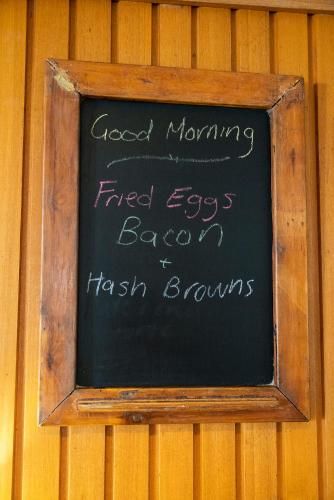 Good Morning
Fried Eggs
Bacon
+
Hash Browns